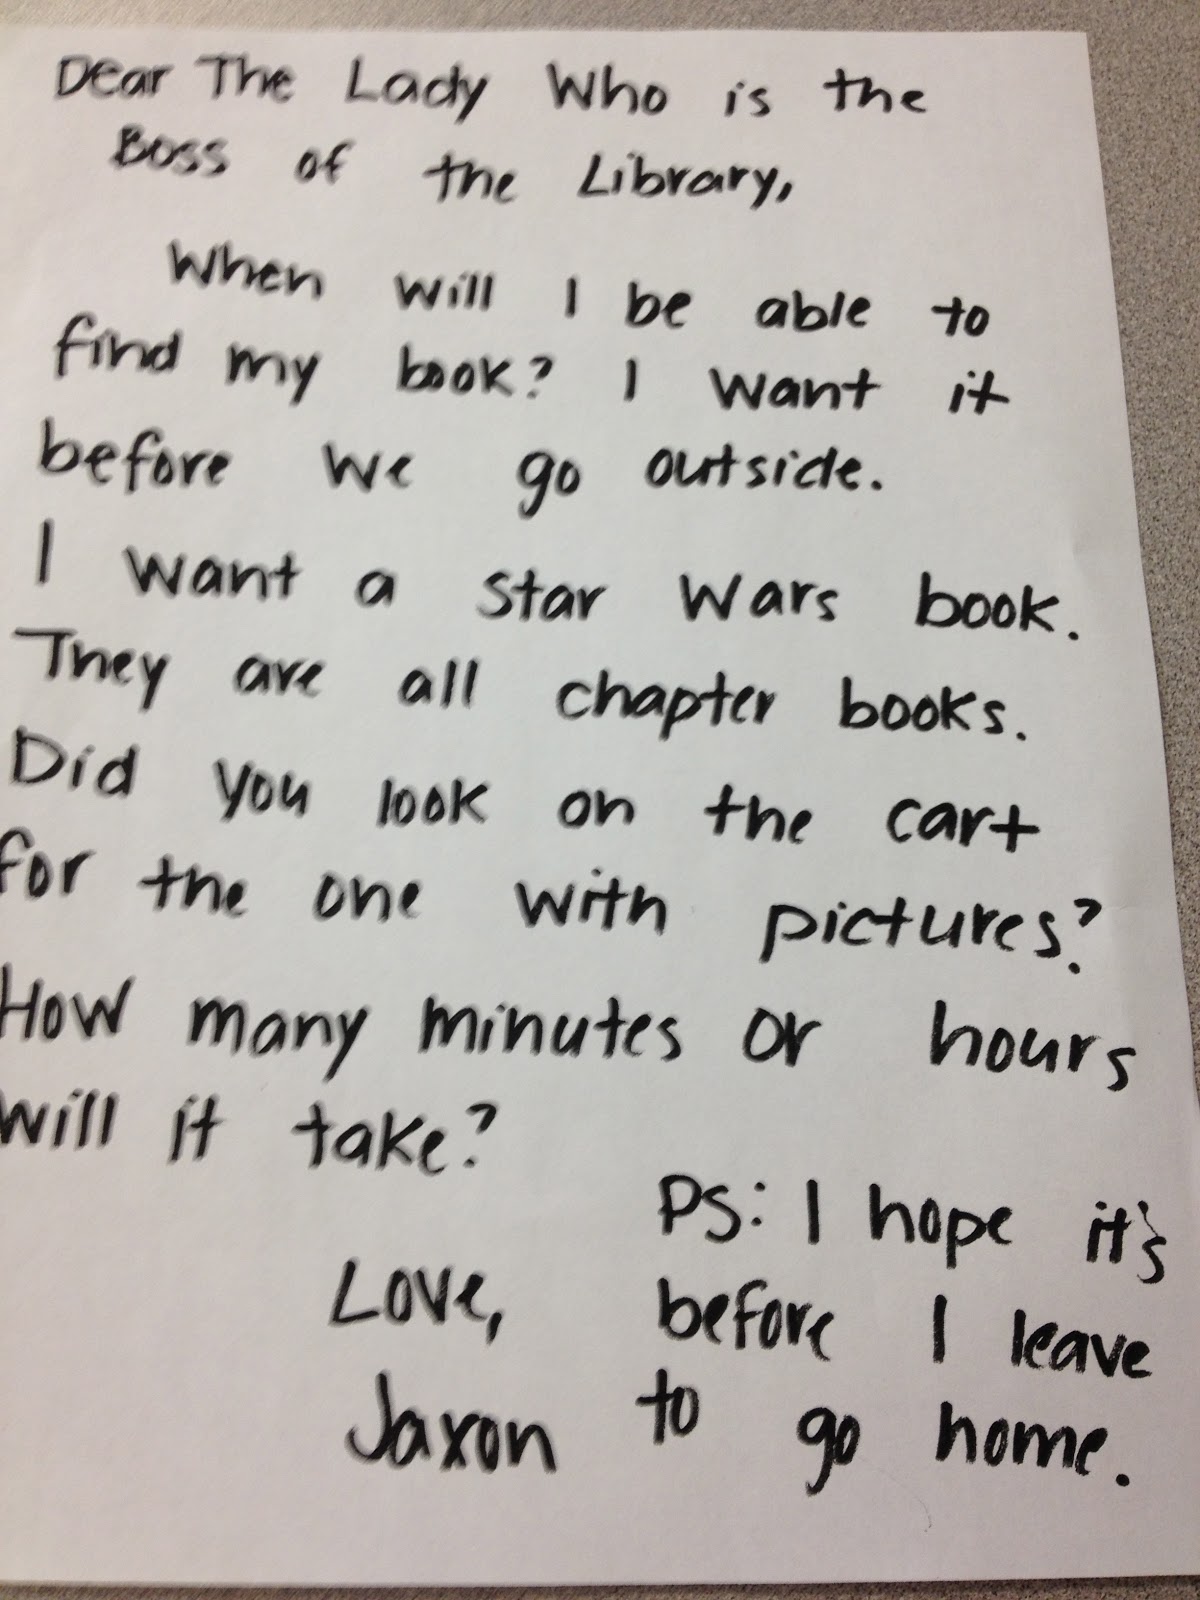 Dear The Lady Who is the
Boss of the Library,
When will I be able to
find my book? I want it
before we go outside.
I want a Star Wars book.
They are all chapter books.
Did you look on the cart
for the one with pictures?
How many minutes or hours
will it take?
Love,
Jaxon
PS: I hope it's
before I leave
to go home.